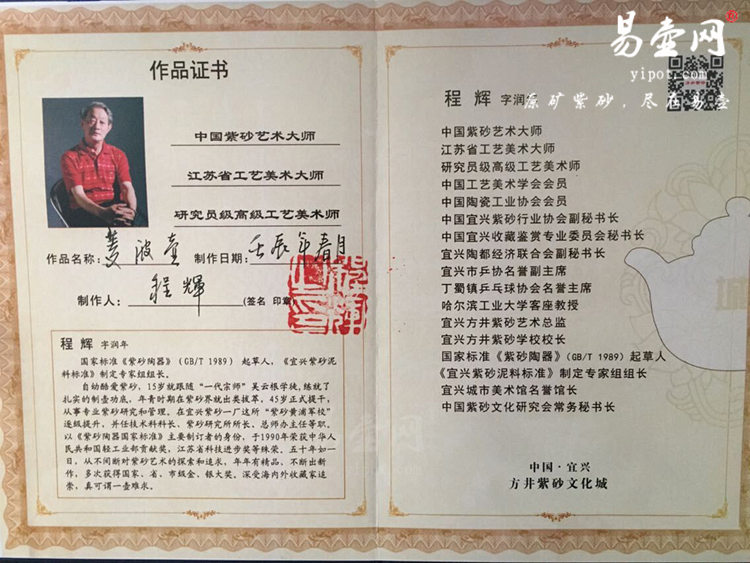 作品证书
中国紫砂艺术大师
江苏省工艺美术大师
研究员级高级工艺美术师
作品名称：菱波壶 制作日期：壬辰年春月
制作人：程輝 (签名 印章)
程 辉 字润年
国家标准《紫砂陶器》（GB/T 1989）起草人，《宜兴紫砂泥
料标准》制定专家组组长。
自幼酷爱紫砂，15岁就跟随“一代宗师”吴云根学徒，练就了
扎实的制壶功底，年青时期在紫砂界就出类拔萃，45岁正式提干，
从事专业紫砂研究和管理。在宜兴紫砂一厂这所“紫砂黄浦军校”
逐级提升，并任技术科科长、紫砂研究所所长、总师办主任等职。
以《紫砂陶器国家标准》主要制订者的身份，于1990年荣获中华人
民共和国轻工业部贡献奖，江苏省科技进步奖等殊荣。五十年如一
日，从不间断对紫砂艺术的探索和追求，年年有精品，不断出新
作，多次获得国家、省、市级金、银大奖。深受海内外收藏家追
崇，真可谓一壶难求。
易壶网
yipot.com
原矿紫砂，尽在易壶
程 辉 字润年
中国紫砂艺术大师
江苏省工艺美术大师
研究员级高级工艺美术师
中国工艺美术学会会员
中国陶瓷工业协会会员
中国宜兴紫砂行业协会副秘书长
中国宜兴收藏鉴赏专业委员会秘书长
宜兴陶都经济联合会副秘书长
宜兴市乒协名誉副主席
丁蜀镇乒乓球协会名誉主席
哈尔滨工业大学客座教授
宜兴方井紫砂艺术总监
宜兴方井紫砂学校校长
国家标准《紫砂陶器》(GB/T 1989) 起草人
《宜兴紫砂泥料标准》制定专家组组长
宜兴城市美术馆名誉馆长
中国紫砂文化研究会常务秘书长
中国·宜兴
方井紫砂文化城